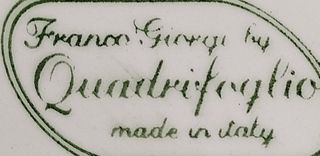 Franco Giorgi by
Quadrifoglio
made in italy